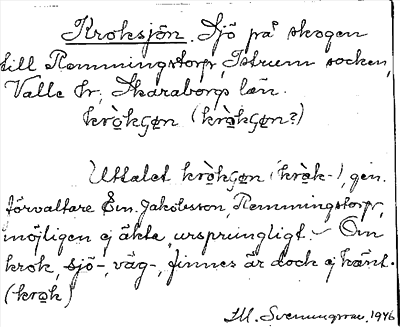 Kroksjön. Sjö på skogen
till Remmingstorp, Istrum socken,
Valle hr, Skaraborgs län.
krò̱kʃɷn (krò̱kʃɷn?)
Uttalet krò̱kʃɷn (krò̱k-), gen.
förvaltare Em. Jakobsson, Remmingstorp,
möjligen ej äkta, ursprungligt. – Om
krok, sjö-, väg-, finnes är dock ej känt.
(kro̱k)
M. Svenungsson. 1946